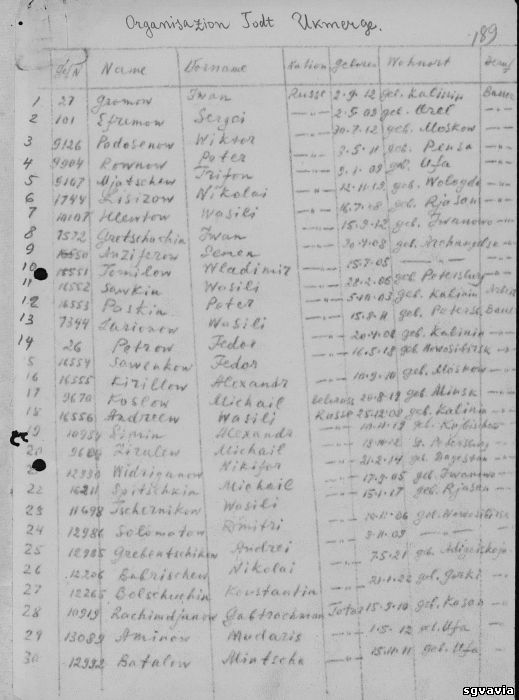 Organisazion Todt Ukmerge.
189
Gef/N Name Vorname Nation Geboren Wohnort Beruf
1 27 Gromow Iwan Russe 2-9-12 geb. Kalinin Bauer
2 101 Efremow Sergei -"- 2-5-09 geb. Orel -"-
3 9126 Podosenow Wiktor -"- 30-7-12 geb. Moskow -"-
4 9904 Rownow Poter -"- 3-5-11 geb. Pensa -"-
5 9107 Mjatschew Trifon -"- 9-1-09 geb. Ufa -"-
6 1744 Lisizow Nikolai -"- 12-11-19 geb. Wologda -"-
7 Wasili -"- 16-7-18 geb. Rjasan -"-
8 7572 Gretschuchin Iwan -"- 15-9-12 geb. Iwanowo -"-
9 Anziferow Semen -"- geb. Archangelsk -"-
10 16551 Tomilow Wladimir -"- 15-7-05
11 16552 Sawkin Wasili -"- 28-2-06 geb. Petersburg
12 16553 Paskin Poter -"- 5-10-03 geb. Kalinin
13 7344 Larionow Wasili -"- 15-8-11 geb. Petersb. Bauer
14 26 Petrow Fedor -"- 20-4-08 geb. Kalinin -"-
5 16554 Sawenkow Fedor -"- 16-5-18 geb. Nowosibirsk -"-
16 16555 Kirillow Alexandr -"- 10-9-10 geb. Moskow -"-
17 9670 Koslow Michail 20-8-19 geb. Minsk -"-
18 16556 Andreew Wasili Russe 25-12-08 geb. Kalinin -"-
19 10954 Simin Alexandr -"- geb. Kuibischew -"-
20 Michail -"- Petersburg -"-
12330 Widriganow Nikifor -"- 21-2-14 geb. Dagestan -"-
22 16211 Spitschkin Michail -"- 17-9-05 geb. Iwanowo -"-
23 11698 Tschernikow Wasili -"- 15-1-17 geb. Rjasan -"-
24 12986 Solomatow Dmitri -"- geb. Nowosibirsk
25 12985 Grebentschikow Andrei -"- 9-11-09 -"-
26 12206 Babrischew Nikolai -"- 7-5-21 geb.
27 12265 Bolschuchin Konstantin -"- 21-1-22 geb. Gorki -"-
28 10919 Rachimdjanow Gabtrachman Tatar 15-9-10 geb. Kasan -"-
29 13089 Aminow Mudaris -"- 1-5-12 geb. Ufa -"-
30 12992 Batalow -"- 15-11-11 geb. Ufa -"-
sgvavia